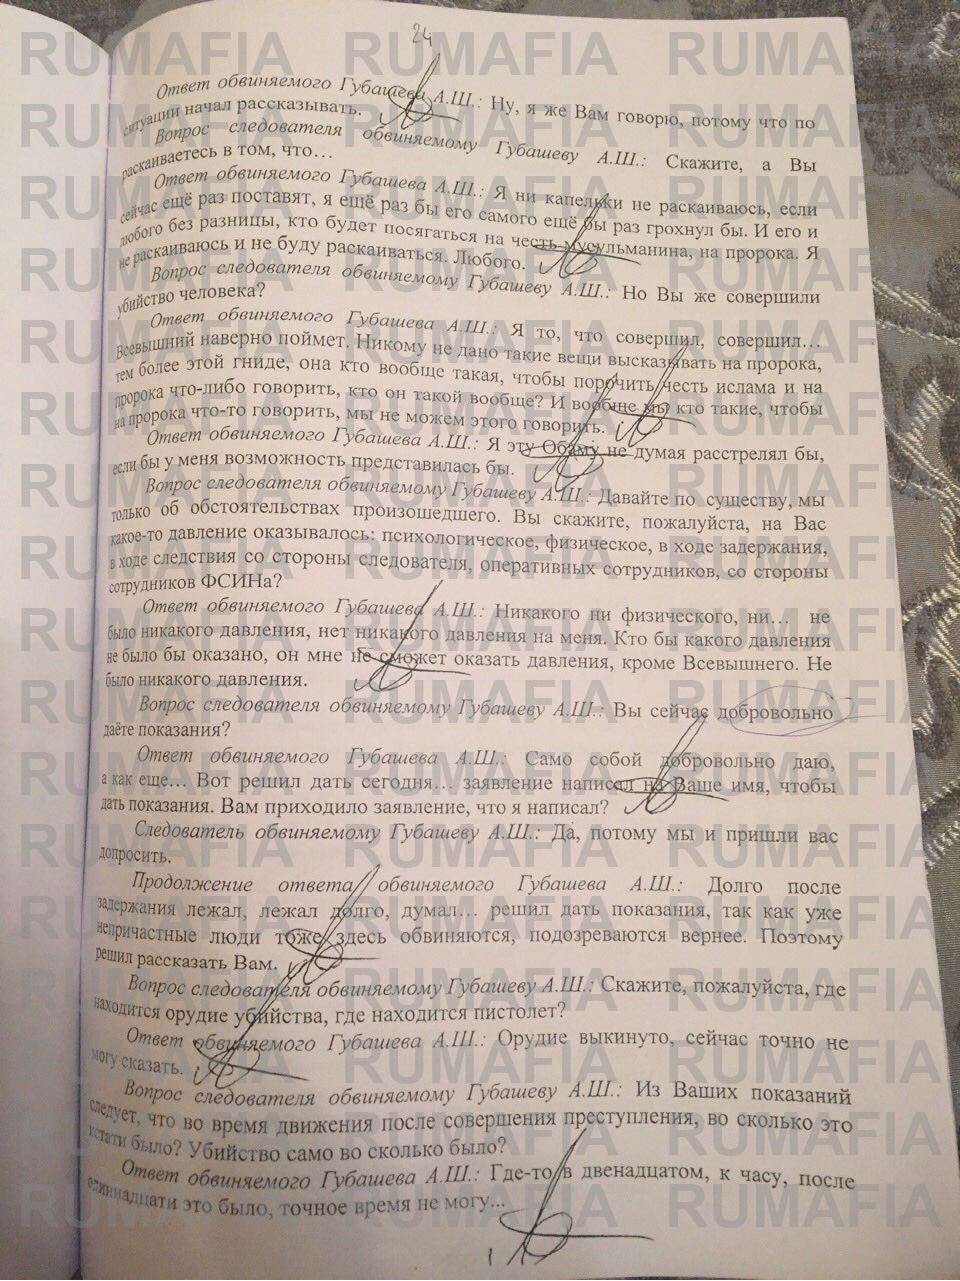 24
Ответ обвиняемого Губашева А.Ш.: Ну, я же Вам говорю, потому что по
ситуации начал рассказывать.
Вопрос следователя обвиняемому Губашеву А.Ш.: Скажите, а Вы
раскаиваетесь в том, что…
Ответ обвиняемого Губашева А.Ш.: Я ни капельки не раскаиваюсь, если
сейчас ещё раз поставят, я ещё раз бы его самого ещё бы раз грохнул бы. И его и
любого без разницы, кто будет посягаться на честь мусульманина, на пророка. Я
не раскаиваюсь и не буду раскаиваться. Любого.
Вопрос следователя обвиняемому Губашеву А.Ш.: Но Вы же совершили
убийство человека?
Ответ обвиняемого Губашева А.Ш.: Я то, что совершил, совершил…
Всевышний наверно поймет. Никому не дано такие вещи высказывать на пророка,
тем более этой гниде, она кто вообще такая, чтобы порочить честь ислама и на
пророка что-либо говорить, кто он такой вообще? И вообще мы кто такие, чтобы
на пророка что-то говорить, мы не можем этого говорить.
Ответ обвиняемого Губашева А.Ш.: Я эту Обаму не думая расстрелял бы,
если бы у меня возможность представилась бы.
Вопрос следователя обвиняемому Губашеву А.Ш.: Давайте по существу, мы
только об обстоятельствах произошедшего. Вы скажите, пожалуйста, на Вас
какое-то давление оказывалось: психологическое, физическое, в ходе задержания,
в ходе следствия со стороны следователя, оперативных сотрудников, со стороны
сотрудников ФСИНа?
Ответ обвиняемого Губашева А.Ш.: Никакого ни физического, ни… не
было никакого давления, нет никакого давления на меня. Кто бы какого давления
не было бы оказано, он мне не сможет оказать давления, кроме Всевышнего. Не
было никакого давления.
Вопрос следователя обвиняемому Губашеву А.Ш.: Вы сейчас добровольно
даёте показания?
Ответ обвиняемого Губашева А.Ш.: Само собой добровольно даю,
а как еще… Вот решил дать сегодня… заявление написал на Ваше имя, чтобы
дать показания. Вам приходило заявление, что я написал?
Следователь обвиняемому Губашеву А.Ш.: Да, потому мы и пришли вас
допросить.
Продолжение ответа обвиняемого Губашева А.Ш.: Долго после
задержания лежал, лежал долго, думал… решил дать показания, так как уже
непричастные люди тоже здесь обвиняются, подозреваются вернее. Поэтому
решил рассказать Вам.
Вопрос следователя обвиняемому Губашеву А.Ш.: Скажите, пожалуйста, где
находится орудие убийства, где находится пистолет?
Ответ обвиняемого Губашева А.Ш.: Орудие выкинуто, сейчас точно не
могу сказать.
Вопрос следователя обвиняемому Губашеву А.Ш.: Из Ваших показаний
следует, что во время движения после совершения преступления, во сколько это
кстати было? Убийство само во сколько было?
Ответ обвиняемого Губашева А.Ш.: Где-то в двенадцатом, к часу, после
одиннадцати это было, точное время не могу...